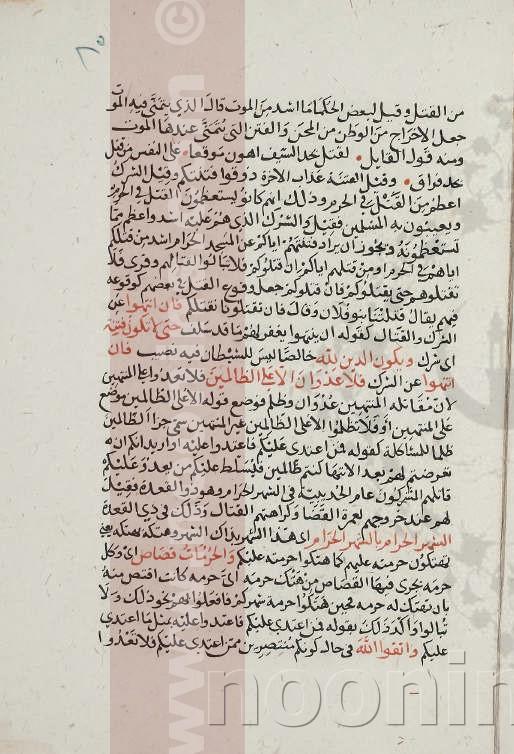 ٨٥
من القتل وقيل لبعض الحكماء ما اشد من الموت قال الذي يتمنى فيه الموت
جعل الاخراج من الوطن من المحن والفتن التي يتمنى عندها الموت
ومنه قول القايل لقتل بحد السيف اهون موقعا على النفس من قتل
بحد فراق وقيل الفتنة عذاب الاخرة ذوقوا فتنتكم وقيل الشرك
اعظم من القتل في الحرم وذلك انهم كانوا يستعظمون القتل في الحرم
ويعيبون به المسلمين فقيل والشرك الذي هم عليه اشد واعظم مما
يستعظمونه ويجوز ان يراد وفتنتهم اياكم عن المسجد الحرام اشد من قتلكم
اياهم في الحرم او من قتلهم اياكم ان قتلوكم فلا تبالوا بقتالهم وقرئ ولا
تقتلوهم حتى يقتلوكم فان قتلوكم جعل وقوع القتل في بعضهم كوقوعه
فيهم يقال قتلتنا بنو فلان وقال فان تقتلونا نقتلكم فان انتهوا عن
الشرك والقتال كقوله ان ينتهوا يغفر لهم ما قد سلف حتى لا تكون فتنة
اي شرك ويكون الدين لله خالصا ليس للشيطان فيه نصيب فان
انتهوا عن الشرك فلا عدوان الا على الظالمين فلا تعدوا على المنتهين
لان مقاتلة المنتهين عدوان وظلم فوضع قوله الا على الظالمين موضع
على المنتهين او فلا تظلموا الا على الظالمين غير المنتهين سمى جزا الظالمين
ظلما للمشاكلة كقوله فمن اعتدى عليكم فاعتدوا عليه او اريد انكم ان
تعرضتم لهم بعد الانتها كنتم ظالمين فيسلط عليكم من يعدو عليكم
قاتلهم المشركون عام الحديبية في الشهر الحرام وهو ذو القعدة فقيل
لهم عند خروجهم لعمرة القضا وكراهتهم القتال وذلك في ذي القعدة
الشهر الحرام بالشهر الحرام اي هذا الشهر بذاك الشهر وهتكه بهتكه يعني
تهتكون حرمته عليهم كما هتكوا حرمته عليكم والحرمات قصاص اي وكل
حرمة يجري فيها القصاص من هتك حرمة اي حرمة كانت اقتص منه
بان تهتك له حرمة فحين هتكوا حرمة شهركم فافعلوا بهم نحو ذلك ولا
تبالوا واكد ذلك بقوله فمن اعتدى عليكم فاعتدوا عليه بمثل ما اعتدى
عليكم واتقوا الله في حال كونكم منتصرين ممن اعتدى عليكم فلا تعدوا ا
www
©
noonin